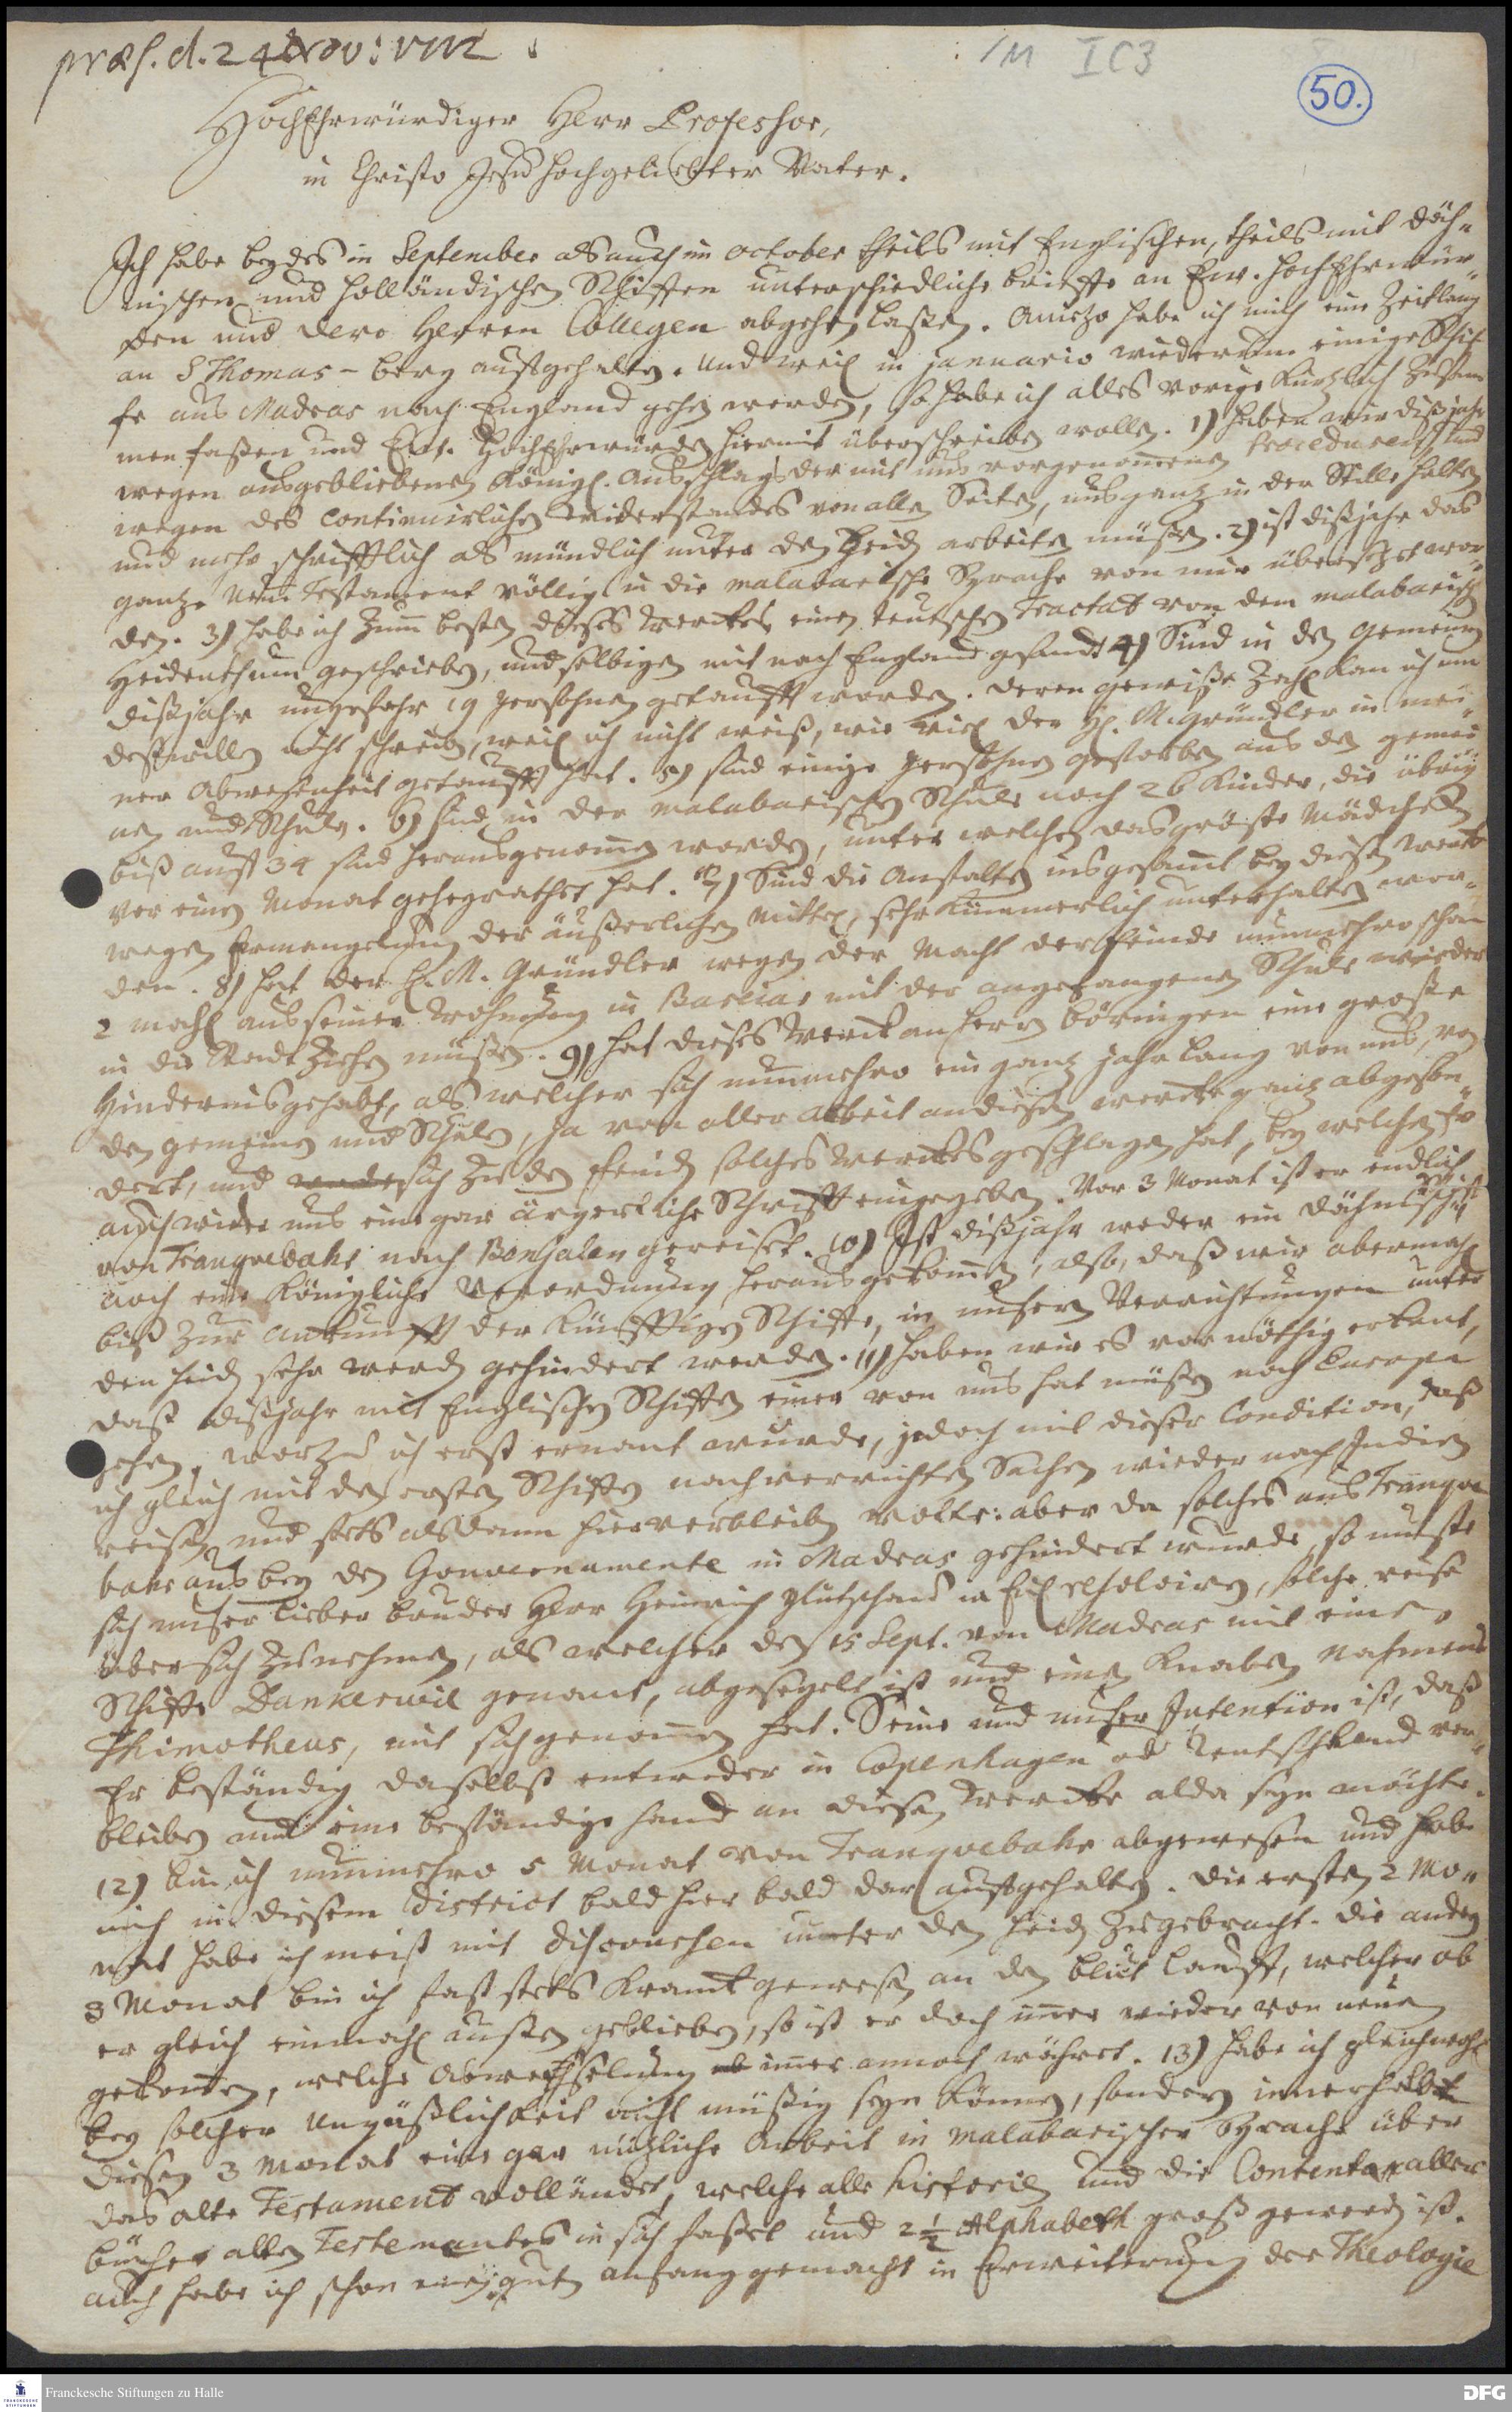 præs. d. 24 Nov: 1712
1M I C 3
50.
HochEhrwürdiger Herr Professor,
in Christo Jesu hochgeliebter Vater.
Ich habe beydes in September als auch im october theils mit Englischen, theils mit däh-
nischen und holländischen Schiffen unterschiedliche brieffe an Ew. HochEhrwür-
den und dero Herren Collegen abgehen laßen. Anietzo habe ich mich eine Zeitlang
an S Thomas-berg auffgehalten. Und weil in januario wiederum einige Schif-
fe aus Madras nach England gehen werden, so habe ich alles vorige kürtzlich zusam-
men faßen und Ew. HochEhrwürden hiermit überschreiben wollen. 1) haben wir dißjahr
wegen ausgebliebenen Königl. Ausschlags der mit uns vorgenommenen Proceduren und
wegen des continuirlichen Widerstandes von allen Seiten, uns gantz in der Stille halten
und mehr schrifftlich als mündlich unter den Heiden arbeiten müßen. 2) ist dißjahr das
gantze Neue Testament völlig in die malabarische Sprache von mir übersetzet wor-
den. 3) habe ich zum besten dieses Werckes einen teutschen Tractat von dem malabarischen
Heidenthum geschrieben, und selbigen mit nach England gesandt 4) Sind in den Gemeinen
dißjahr ungefehr 19 persohnen getaufft worden. deren gewiße Zahl kan ich um
deßwillen nicht schreiben, weil ich nicht weiß, wie viel der H. M. Gründler in mei-
ner Abwesenheit getaufft hat. 5) sind einige persohnen gestorben aus den gemei-
nen und Schulen. 6) sind in der malabarischen Schule noch 26 Kinder, die übrigen
biß auff 34 sind herausgenommen worden, unter welchen das gröste Mädchen
vor einen Monat geheyrathet hat. 7) Sind die Anstalten insgesamt bey diesen Werck
wegen Ermangelung der äußerlichen Mittel, sehr kümmerlich unterhalten wor-
den. 8) hat der H. M. Gründler wegen der Macht der feinde nunmehro schon
2 mahl aus seiner Wohnung in Barciar mit der angefangenen Schule wieder
in die Stadt ziehen müßen. 9) hat dieses Werck an Herrn Böringen eine große
Hinderniß gehabt, als welcher sich nunmehro ein gantz jahr lang von uns, von
den gemeinen und Schulen, ja von aller arbeit an diesem wercke gantz abgeson-
dert, und sich zu den feinden solches Werckes geschlagen hat, bey welchen Er
auch wider uns eine gar ärgerliche Schrifft eingegeben. Vor 3 Monat ist er endlich
von Tranquebahr nach Bengalen gereiset. 10) Ist dißjahr weder ein dähnisch Schiff
noch eine Königliche Verordnung herausgekommen, also, daß wir abermahl
biß zur Ankunfft der künfftigen Schiffe, in unsern Verrichtungen unter
den heiden sehr werden gehindert werden. 11) haben wir es vor nöthig erkant,
daß dißjahr mit Englischen Schiffen einer von uns hat müßen nach Europa
gehen, worzu ich erst ernant wurde, jedoch mit dieser Condition, daß
ich gleich mit den ersten Schiffen nach verrichten Sachen wieder nach Indien
reisen und stets alsdann hier verbleiben wolte: aber da solches aus Tranque-
bahr aus bey den Gouvernamente in Madras gehindert wurde, so muste
sich unser lieber bruder Herr Heinrich Plütschau resolviren, solche reise
über sich zunehmen, als welcher den 15 Sept. von Madras mit einem
Schiffe Dankervie genant, abgesegelt ist und einen Knaben nahmens
Thimotheus, mit sich genommen hat. Seine und unser Intention ist, daß
Er beständig daselbst entweder in Copenhagen od Teutschland ver-
bleiben und eine beständige hand an diesen Wercke alda seyn möchte.
12) bin ich nunmehro 5 Monat von Tranquebahr abgewesen und habe
mich in diesem district bald hier bald dar auffgehalten. die ersten 2 Mo-
nat habe ich meist mit discourhen unter den heiden zugebracht. die andern
3 Monat bin ich fast stets kranck gewesen an den blut lauff, welcher ob
er gleich einmahl außen geblieben, so ist er doch immer wieder von neuen
gekommen, welche Abwechselung immer annoch währet. 13) habe ich gleichwohl
bey solcher Unpäßlichkeit nicht müßig seyn können, sondern innerhalb
diesen 3 Monat eine gar nützliche Arbeit in malabarischer Sprache über
das alte Testament vollendet, welche alle historien und die Contenta aller
bücher alten Testementes in sich faßet und 2 1/2 Alphabeth groß geworden ist.
auch habe ich schon einen guten anfang gemacht in Erweiterung der Theologie
Franckesche Stiftungen zu Halle
FRANCKESCHE STIFTUNGEN
DFG